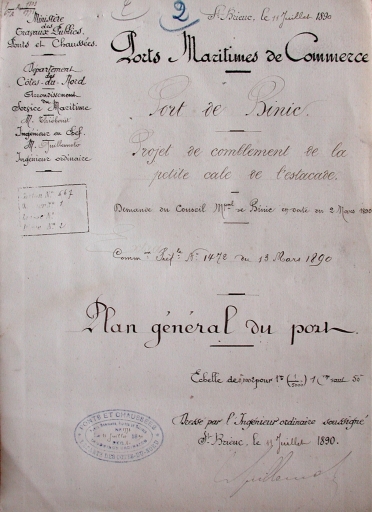 2
St Brieuc, le 11 Juillet 1890
Ministère
des
Travaux Publics.
Ponts et Chaussées.
Département
des
Côtes-du-Nord
Arrondissement
Service Maritime
M.
Ingénieur en Chef.
M. Guillemoto
Ingénieur ordinaire
Ports Maritimes de Commerce
Port de Binic.
Projet de comblement de la
petite cale de l'estacade.
Demande du Conseil Mpal de Binic en date du 2 Mars 1890
Common Préfle No 1472 du 13 Mars 1890
Plan général du port.
Echelle de pour 1m
PONTS ET CHAUSSÉES
Dressé par l'Ingénieur ordinaire soussigné
St Brieuc, le 11 Juillet 1890.